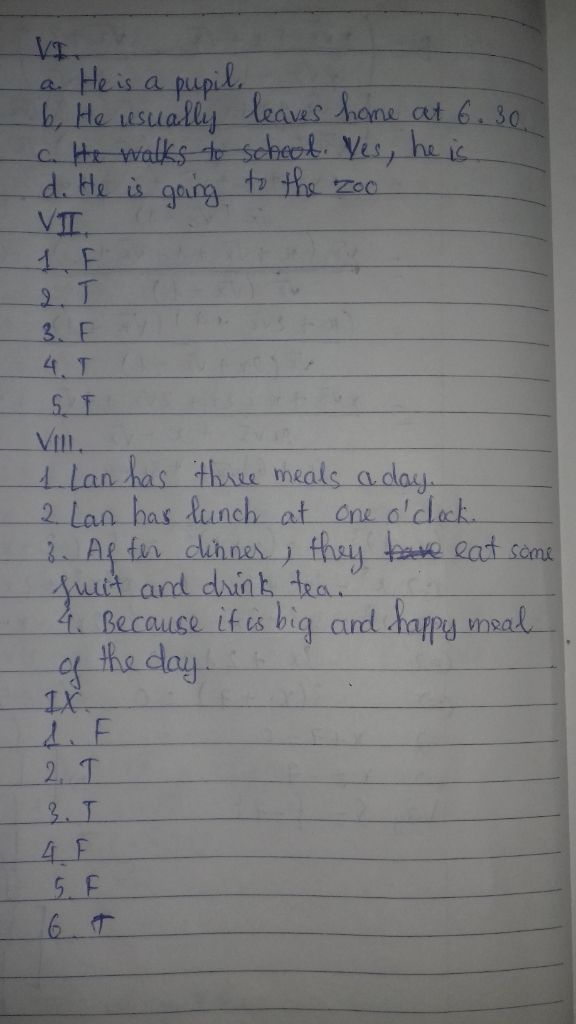 VI.
a. He is a pupil.
b, He usually leaves home at 6.30.
c. He walks to school. Yes, he is
d. He is going to the zoo
VII.
1. F
2. T
3. F
4. T
5. T
VIII.
1 Lan has three meals a day.
2. Lan has lunch at one o'clock.
3. After dinner, they have eat some
fruit and drink tea.
4. Because it is big and happy meal
of the day.
IX.
1. F
2. T
3. T
4. F
5. F
6. T